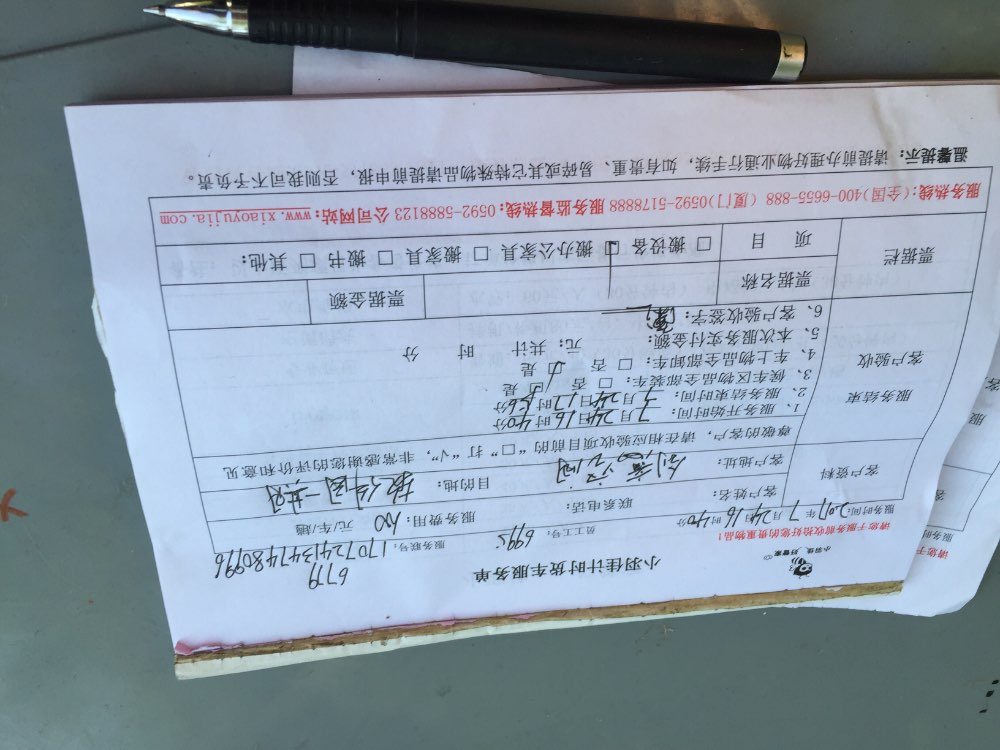 小羽佳计时货车服务单
小羽佳.好管家
请您于服务前收拾好您的贵重物品！
员工工号：695
服务联号：1707241347480996
6779
服务时间：2017年7月24日16时40分
服务费用：100元/车/趟
客户资料
客户姓名：
联系电话：
客户地址：
目的地：
尊敬的客户，请在相应验收项目前的“□”打“√”，非常感谢您的评价和意见
服务结束
客户验收
1、服务开始时间：7月24日16时40分
2、服务结束时间：7月24日17时56分
3、候车区物品全部装车：□否 □是
4、车上物品全部卸车：□否 □是
5、本次服务实付金额：元；共计 时 分
6、客户验收签字：
票据栏
票据名称
票据金额
项 目
□搬设备 □搬办公家具 □搬家具 □搬书 □其他：
服务热线：(全国)400-6655-888 (厦门)0592-5178888 服务监督热线：0592-5888123 公司网站：www.xiaoyujia.com
温馨提示：请提前办理好物业通行手续，如有贵重、易碎或其它特殊物品请提前申报，否则我司不予负责。